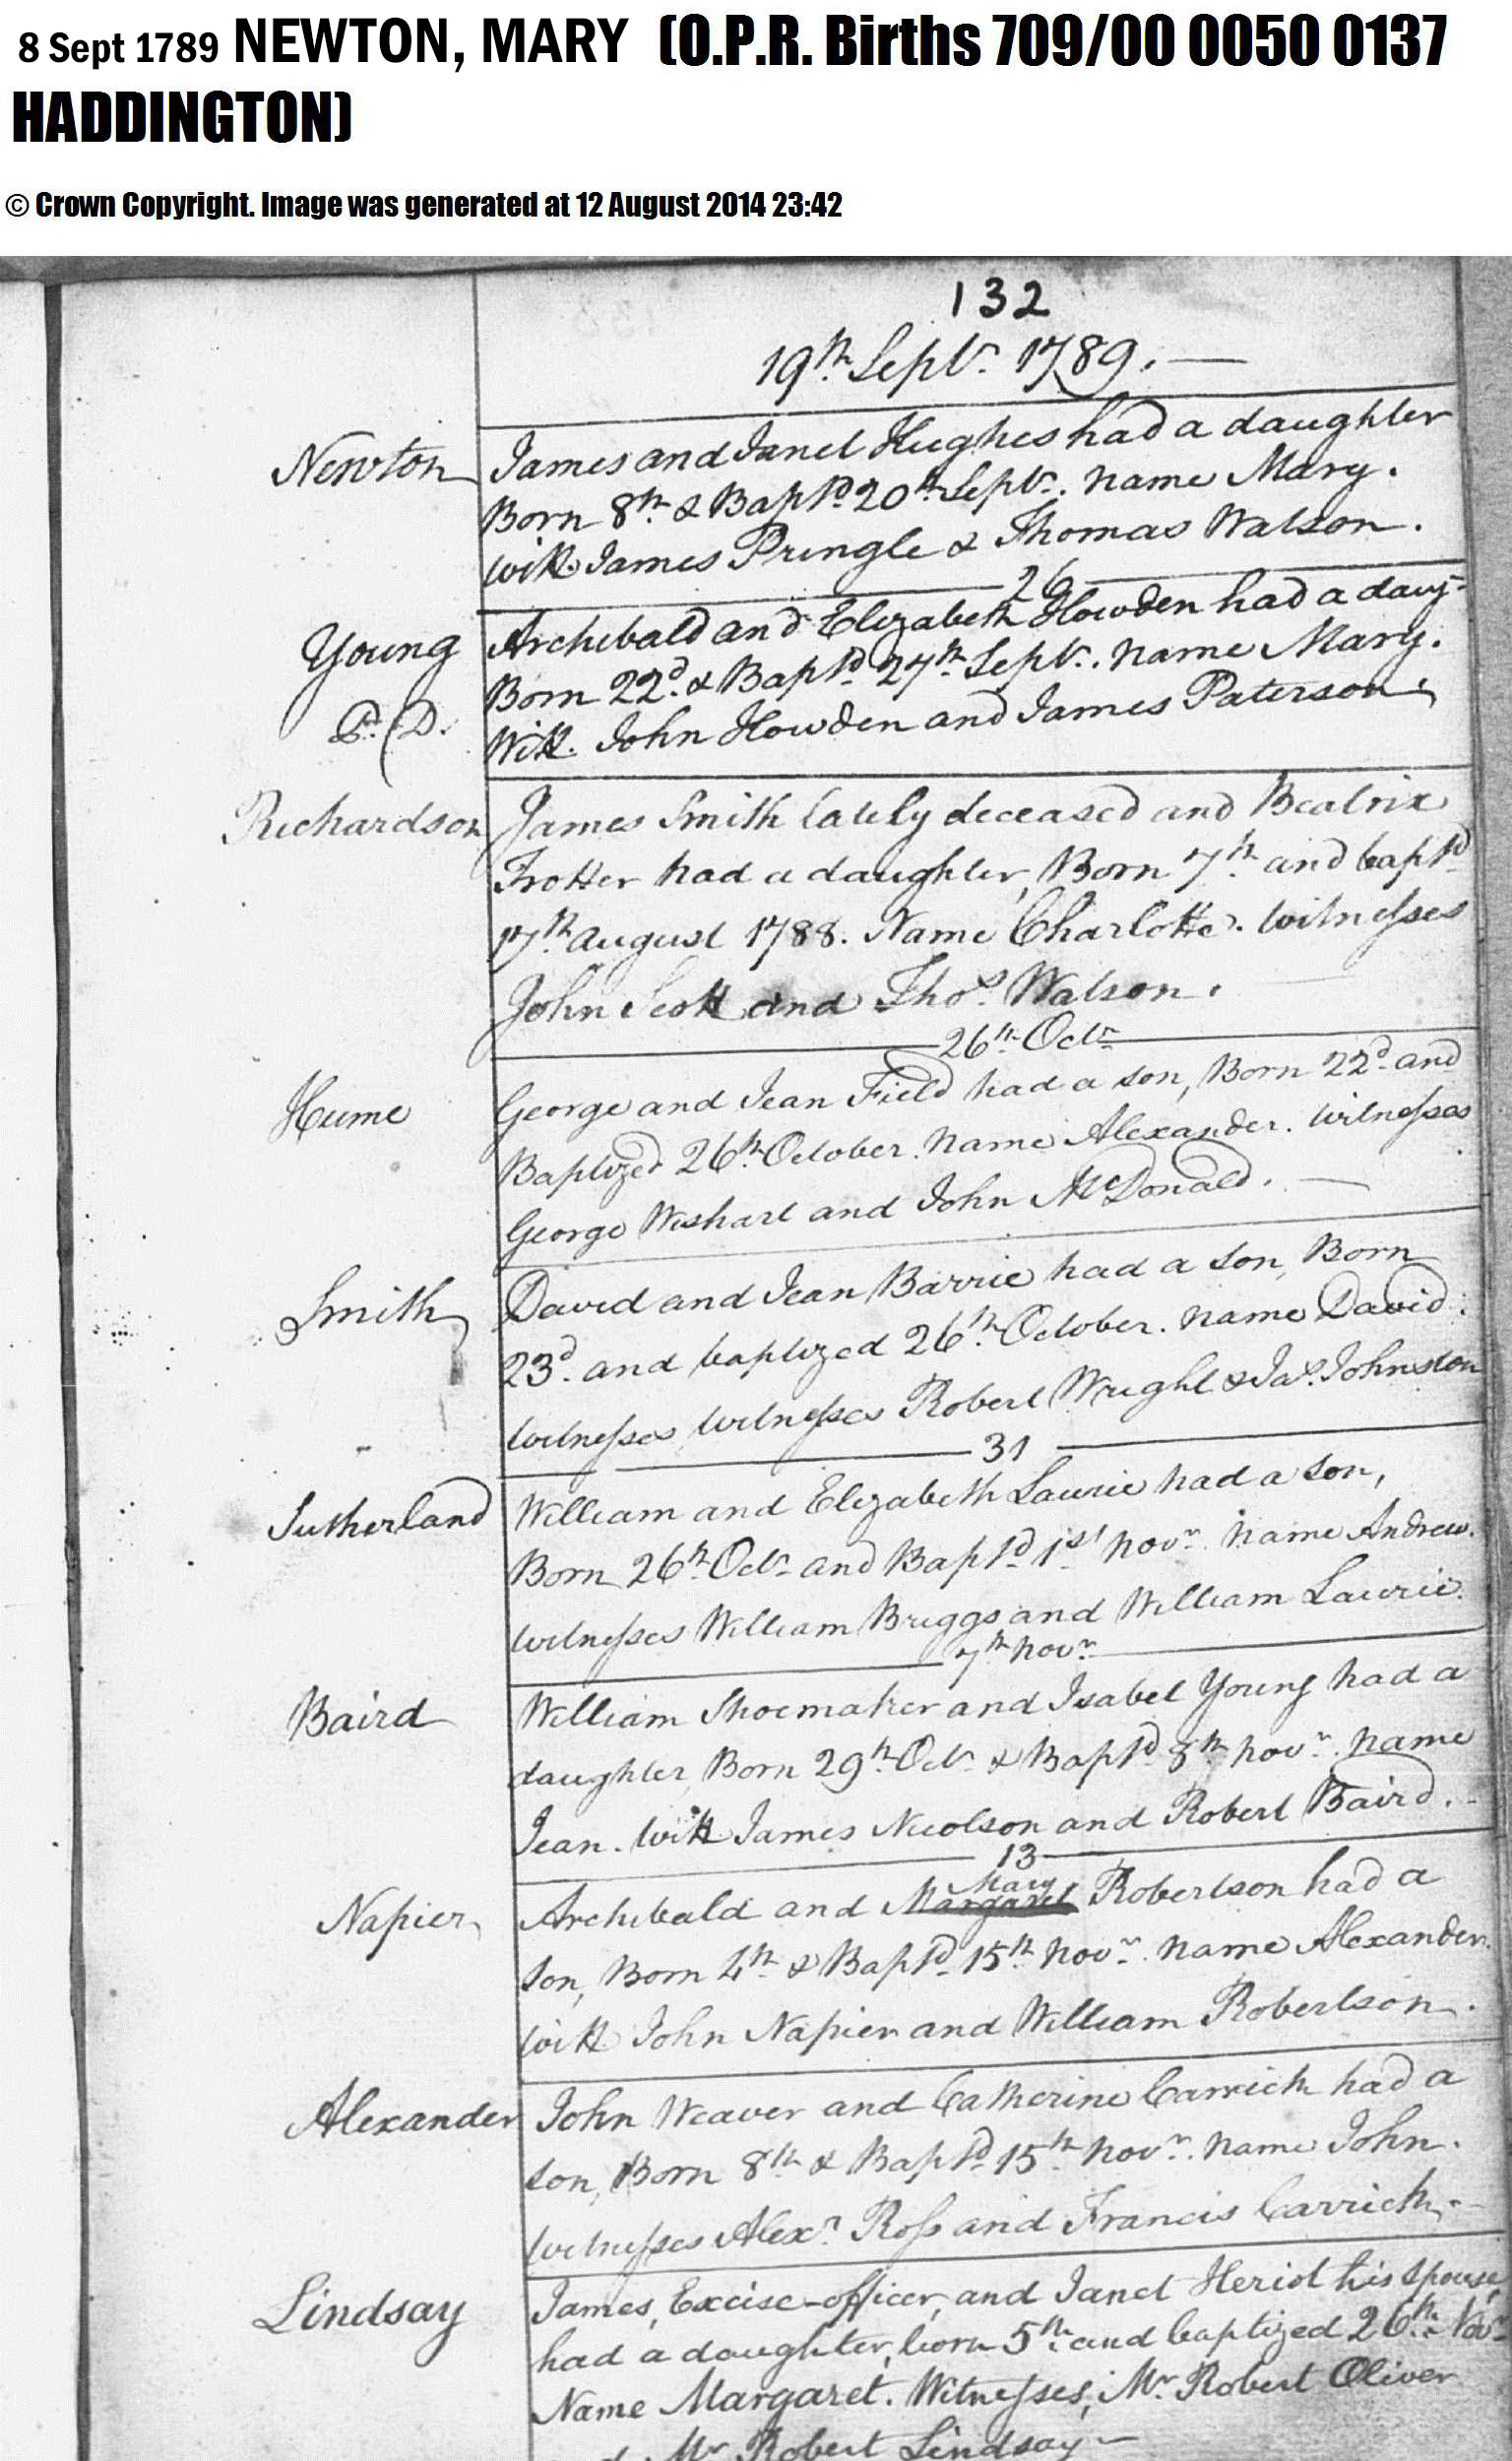 8 Sept 1789 NEWTON, MARY (O.P.R. Births 709/00 0050 0137
HADDINGTON)
© Crown Copyright. Image was generated at 12 August 2014 23:42
132
19th. Septr. 1789. —
Newton James and Janet Hughes had a daughter
Born 8th. & Baptd. 20th Septr. name Mary.
Witt. James Pringle & Thomas Watson.
26
Young Archibald and Elizabeth Howden had a daug-
Born 22d. & Baptd. 27th Septr. name Mary.
P. D. Witt. John Howden and James Paterson.
Richardson James Smith lately deceased and Beatrix
Trotter had a daughter, Born 7th. and baptd.
17th. August 1788. Name Charlotte. Witnesses
John Scott and Thos. Watson.
26th. Octr.
Hume George and Jean Field had a son, Born 22d. and
Baptized 26th. October. name Alexander. Witnesses
George Wishart and John McDonald. —
Smith David and Jean Barrie had a son, Born
23d. and baptized 26th. October. name David.
Witnesses Witnesses Robert Wright & Jas. Johnston
31
Sutherland William and Elizabeth Laurie had a son,
Born 26th. Octr. and Baptd. 1st. Novr. Name Andrew.
Witnesses William Briggs and William Laurie.
7th Novr.
Baird William Shoemaker and Isabel Young had a
daughter, Born 29th. Octr. & Baptd. 8th Novr. Name
Jean. Witt. James Nicolson and Robert Baird.
13
Mary
Napier Archibald and Margaret Robertson had a
son, Born 4th. & Baptd. 15th. Novr. Name Alexander.
Witt. John Napier and William Robertson.
Alexander John Weaver and Catherine Carrick had a
son, Born 8th & Baptd. 15th Novr. Name John.
Witnesses Alexr. Ross and Francis Carrick. -
Lindsay James, Excise-officer, and Janet Heriot his spouse,
had a daughter, born 5th. and baptized 26th. Novr
Name Margaret. Witnesses, Mr. Robert Oliver
Mr Robert Lindsay —